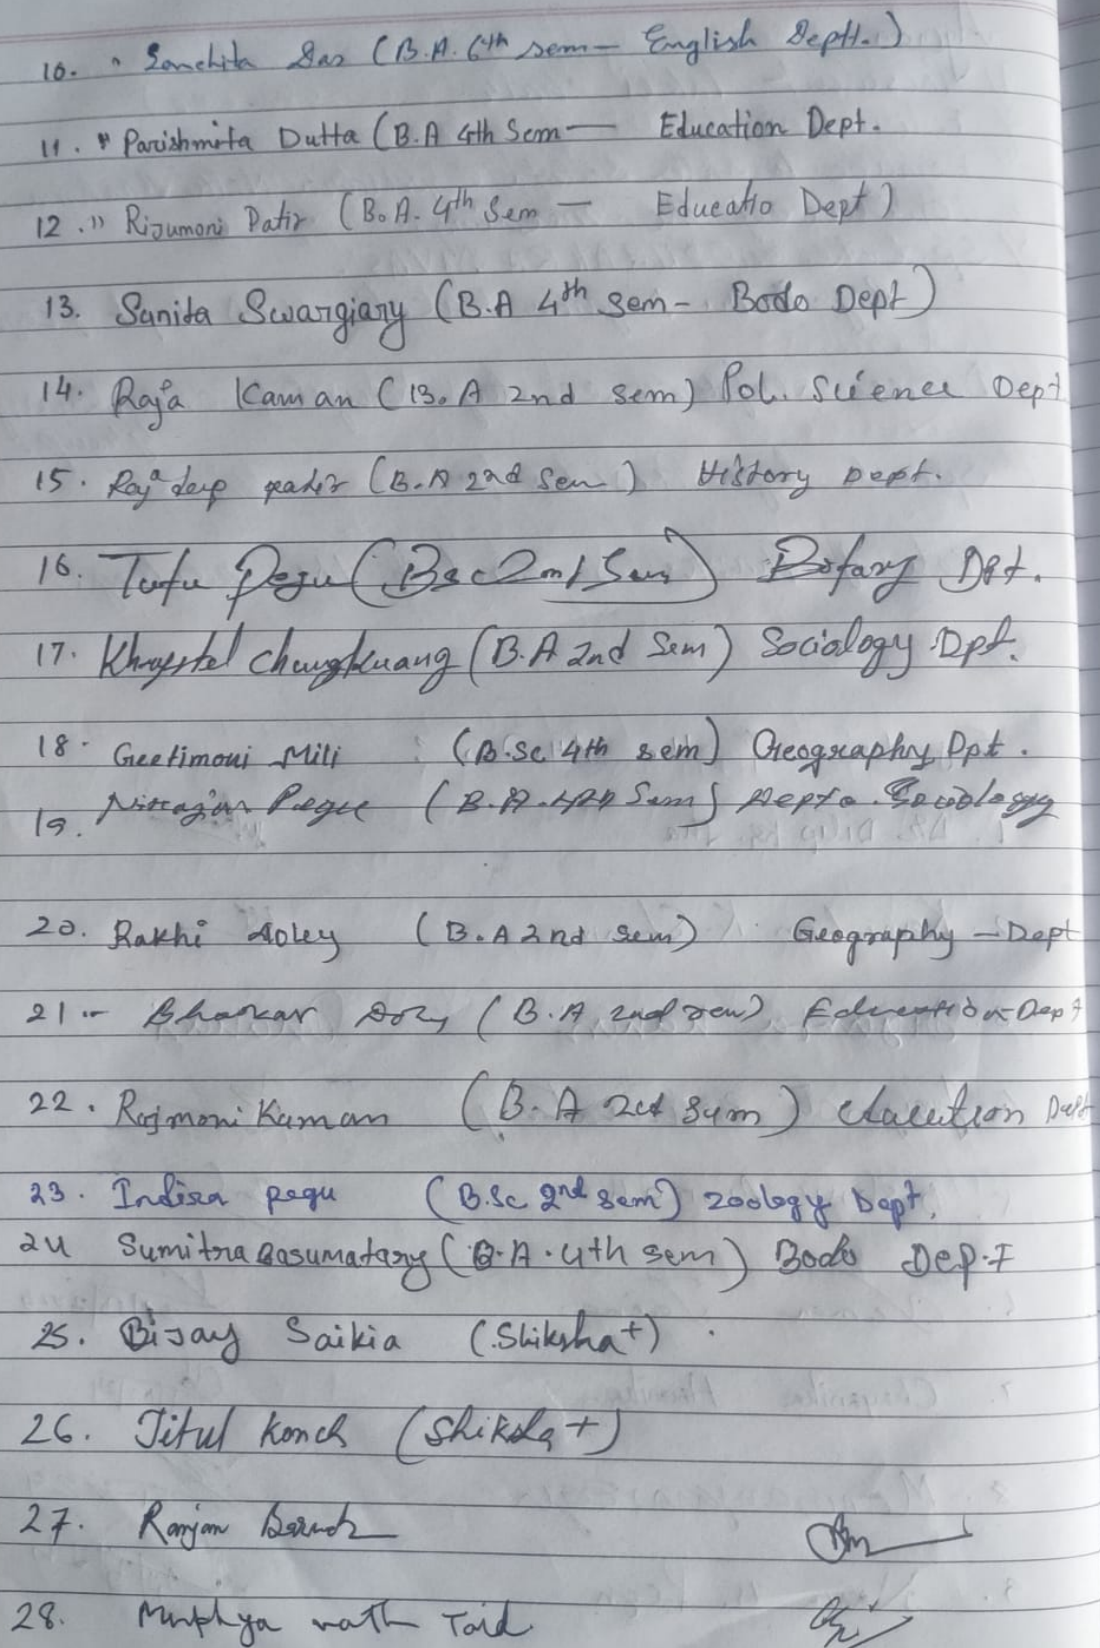 10. " Sanchita Das (B.A. 6th sem – English Deptt.)
11. " Parishmita Dutta (B.A 4th Sem — Education Dept.
12. " Rijumoni Patir (B.A. 4th Sem — Educatio Dept)
13. Sanita Swargiary (B.A 4th Sem - Bodo Dept)
14. Raja Kaman (B.A 2nd sem) Pol. Science Dept
15. Rajadeep (B.A 2nd Sem) History Dept.
16. Pegu (Bsc 2nd Sem) Botany Dpt.
17. Khrystel Chungkuang (B.A 2nd Sem) Sociology Dpt.
18. Geetimoni Mili (B.Sc 4th sem) Geography Dpt.
19. Pegu (B.A. 4th Sem) Dept. Sociology
20. Rakhi Doley (B.A 2nd sem) Geography – Dept
21. Bhaskar Doley (B.A 2nd sem) Education-Dept
22. Rajmoni Kaman (B.A 2nd Sem) Dept
23. Indira pegu (B.Sc 2nd sem) Zoology Dept.
24 Sumitra Basumatary (B.A. 4th sem) Bodo Dept
25. Bijay Saikia (Shiksha+)
26. Jitul Konch (Shiksha+)
27. Ranjan Baruah
28. nath Taid